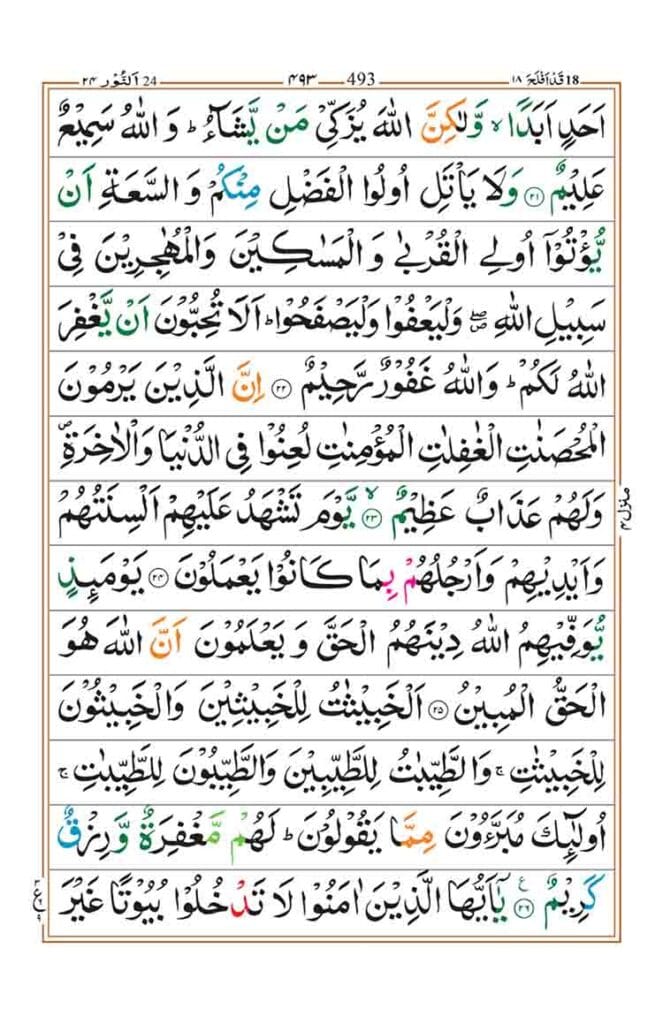 18 قَدْ اَفْلَحَ ۱۸ 493 ۴۹۳ 24 اَلنُّوْر ۲۴
اَحَدٍ اَبَدًا ۙ وَّلٰكِنَّ اللّٰهَ يُزَكِّيْ مَنْ يَّشَآءُ ؕ وَ اللّٰهُ سَمِيْعٌ
عَلِيْمٌ ۝۲۱ وَلَا يَاْتَلِ اُولُوا الْفَضْلِ مِنْكُمْ وَ السَّعَةِ اَنْ
يُّؤْتُوْۤا اُولِي الْقُرْبٰى وَ الْمَسٰكِيْنَ وَالْمُهٰجِرِيْنَ فِيْ
سَبِيْلِ اللّٰهِ ۖ وَلْيَعْفُوْا وَلْيَصْفَحُوْا ؕ اَلَا تُحِبُّوْنَ اَنْ يَّغْفِرَ
اللّٰهُ لَكُمْ ؕ وَاللّٰهُ غَفُوْرٌ رَّحِيْمٌ ۝۲۲ اِنَّ الَّذِيْنَ يَرْمُوْنَ
الْمُحْصَنٰتِ الْغٰفِلٰتِ الْمُؤْمِنٰتِ لُعِنُوْا فِي الدُّنْيَا وَالْاٰخِرَةِ ۪
وَلَهُمْ عَذَابٌ عَظِيْمٌ ۝۲۳ۙ يَّوْمَ تَشْهَدُ عَلَيْهِمْ اَلْسِنَتُهُمْ
منزل۴
وَاَيْدِيْهِمْ وَاَرْجُلُهُمْ بِمَا كَانُوْا يَعْمَلُوْنَ ۝۲۴ يَوْمَئِذٍ
يُّوَفِّيْهِمُ اللّٰهُ دِيْنَهُمُ الْحَقَّ وَ يَعْلَمُوْنَ اَنَّ اللّٰهَ هُوَ
الْحَقُّ الْمُبِيْنُ ۝۲۵ اَلْخَبِيْثٰتُ لِلْخَبِيْثِيْنَ وَالْخَبِيْثُوْنَ
لِلْخَبِيْثٰتِ ۚ وَالطَّيِّبٰتُ لِلطَّيِّبِيْنَ وَالطَّيِّبُوْنَ لِلطَّيِّبٰتِ ۚ
اُولٰٓئِكَ مُبَرَّءُوْنَ مِمَّا يَقُوْلُوْنَ ؕ لَهُمْ مَّغْفِرَةٌ وَّ رِزْقٌ
كَرِيْمٌ ۝۲۶ يٰۤاَيُّهَا الَّذِيْنَ اٰمَنُوْا لَا تَدْخُلُوْا بُيُوْتًا غَيْرَ